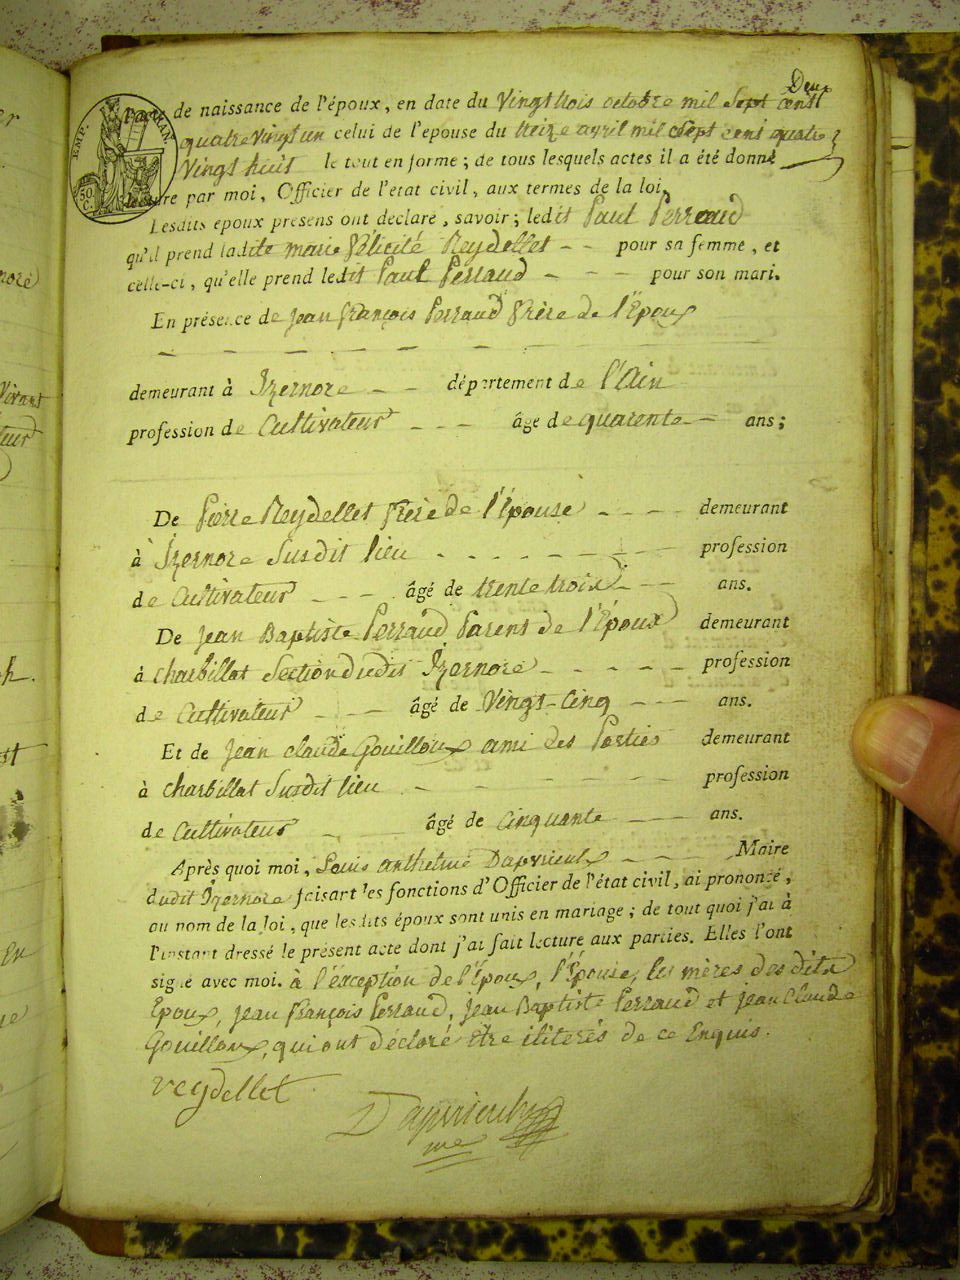 Deux
EMP. FRAN.
50. C.
l'acte de naissance de l'époux, en date du Vingt trois octobre mil Sept cent
quatre vingt un celui de l'epouse du treize avril mil Sept cent quatre
Vingt huit le tout en forme ; de tous lesquels actes il a été donné
lecture par moi, Officier de l'état civil, aux termes de la loi.
Lesdits epoux présens ont declaré, savoir ; ledit Paul Perraud
qu'il prend ladite marie félicité Reydellet - - pour sa femme, et
celle-ci, qu'elle prend ledit Paul Perraud - - - pour son mari.
En présence de Jean françois Perraud frère de l'Epoux
demeurant à Izernore - - département de l'Ain
profession de Cultivateur - - - âge de quarente - ans ;
De Pierre Reydellet frère de l'Épouse - - - - demeurant
à Izernore Susdit lieu - - - - - - - - profession
de Cultivateur - - - âgé de trente trois - - ans.
De Jean Baptiste Perraud Parent de l'Époux demeurant
à charbillat Section dudit Izernore - - - - - profession
de Cultivateur - - - âgé de Vingt-Cinq - - - ans.
Et de Jean claude Gouilloux ami des Parties demeurant
à charbillat Susdit lieu - - - - - profession
de Cultivateur - - âgé de Cinquante - - - ans.
Après quoi moi, Louis anthelme Dapvrieulx - - - Maire
dudit Izernore faisart les fonctions d'Officier de l'état civil, ai prononcé,
au nom de la loi, que lesdits époux sont unis en mariage ; de tout quoi j'ai à
l'instant dressé le présent acte dont j'ai fait lecture aux parties. Elles l'ont
signé avec moi. à l'éxception de l'Époux, l'Épouse, les mères des dits
Epoux, Jean françois Perraud, Jean Baptiste Perraud et Jean Claude
Gouilloux, qui ont déclaré être iliterés de ce Enquis.
reydellet
Dapvrieulx
me